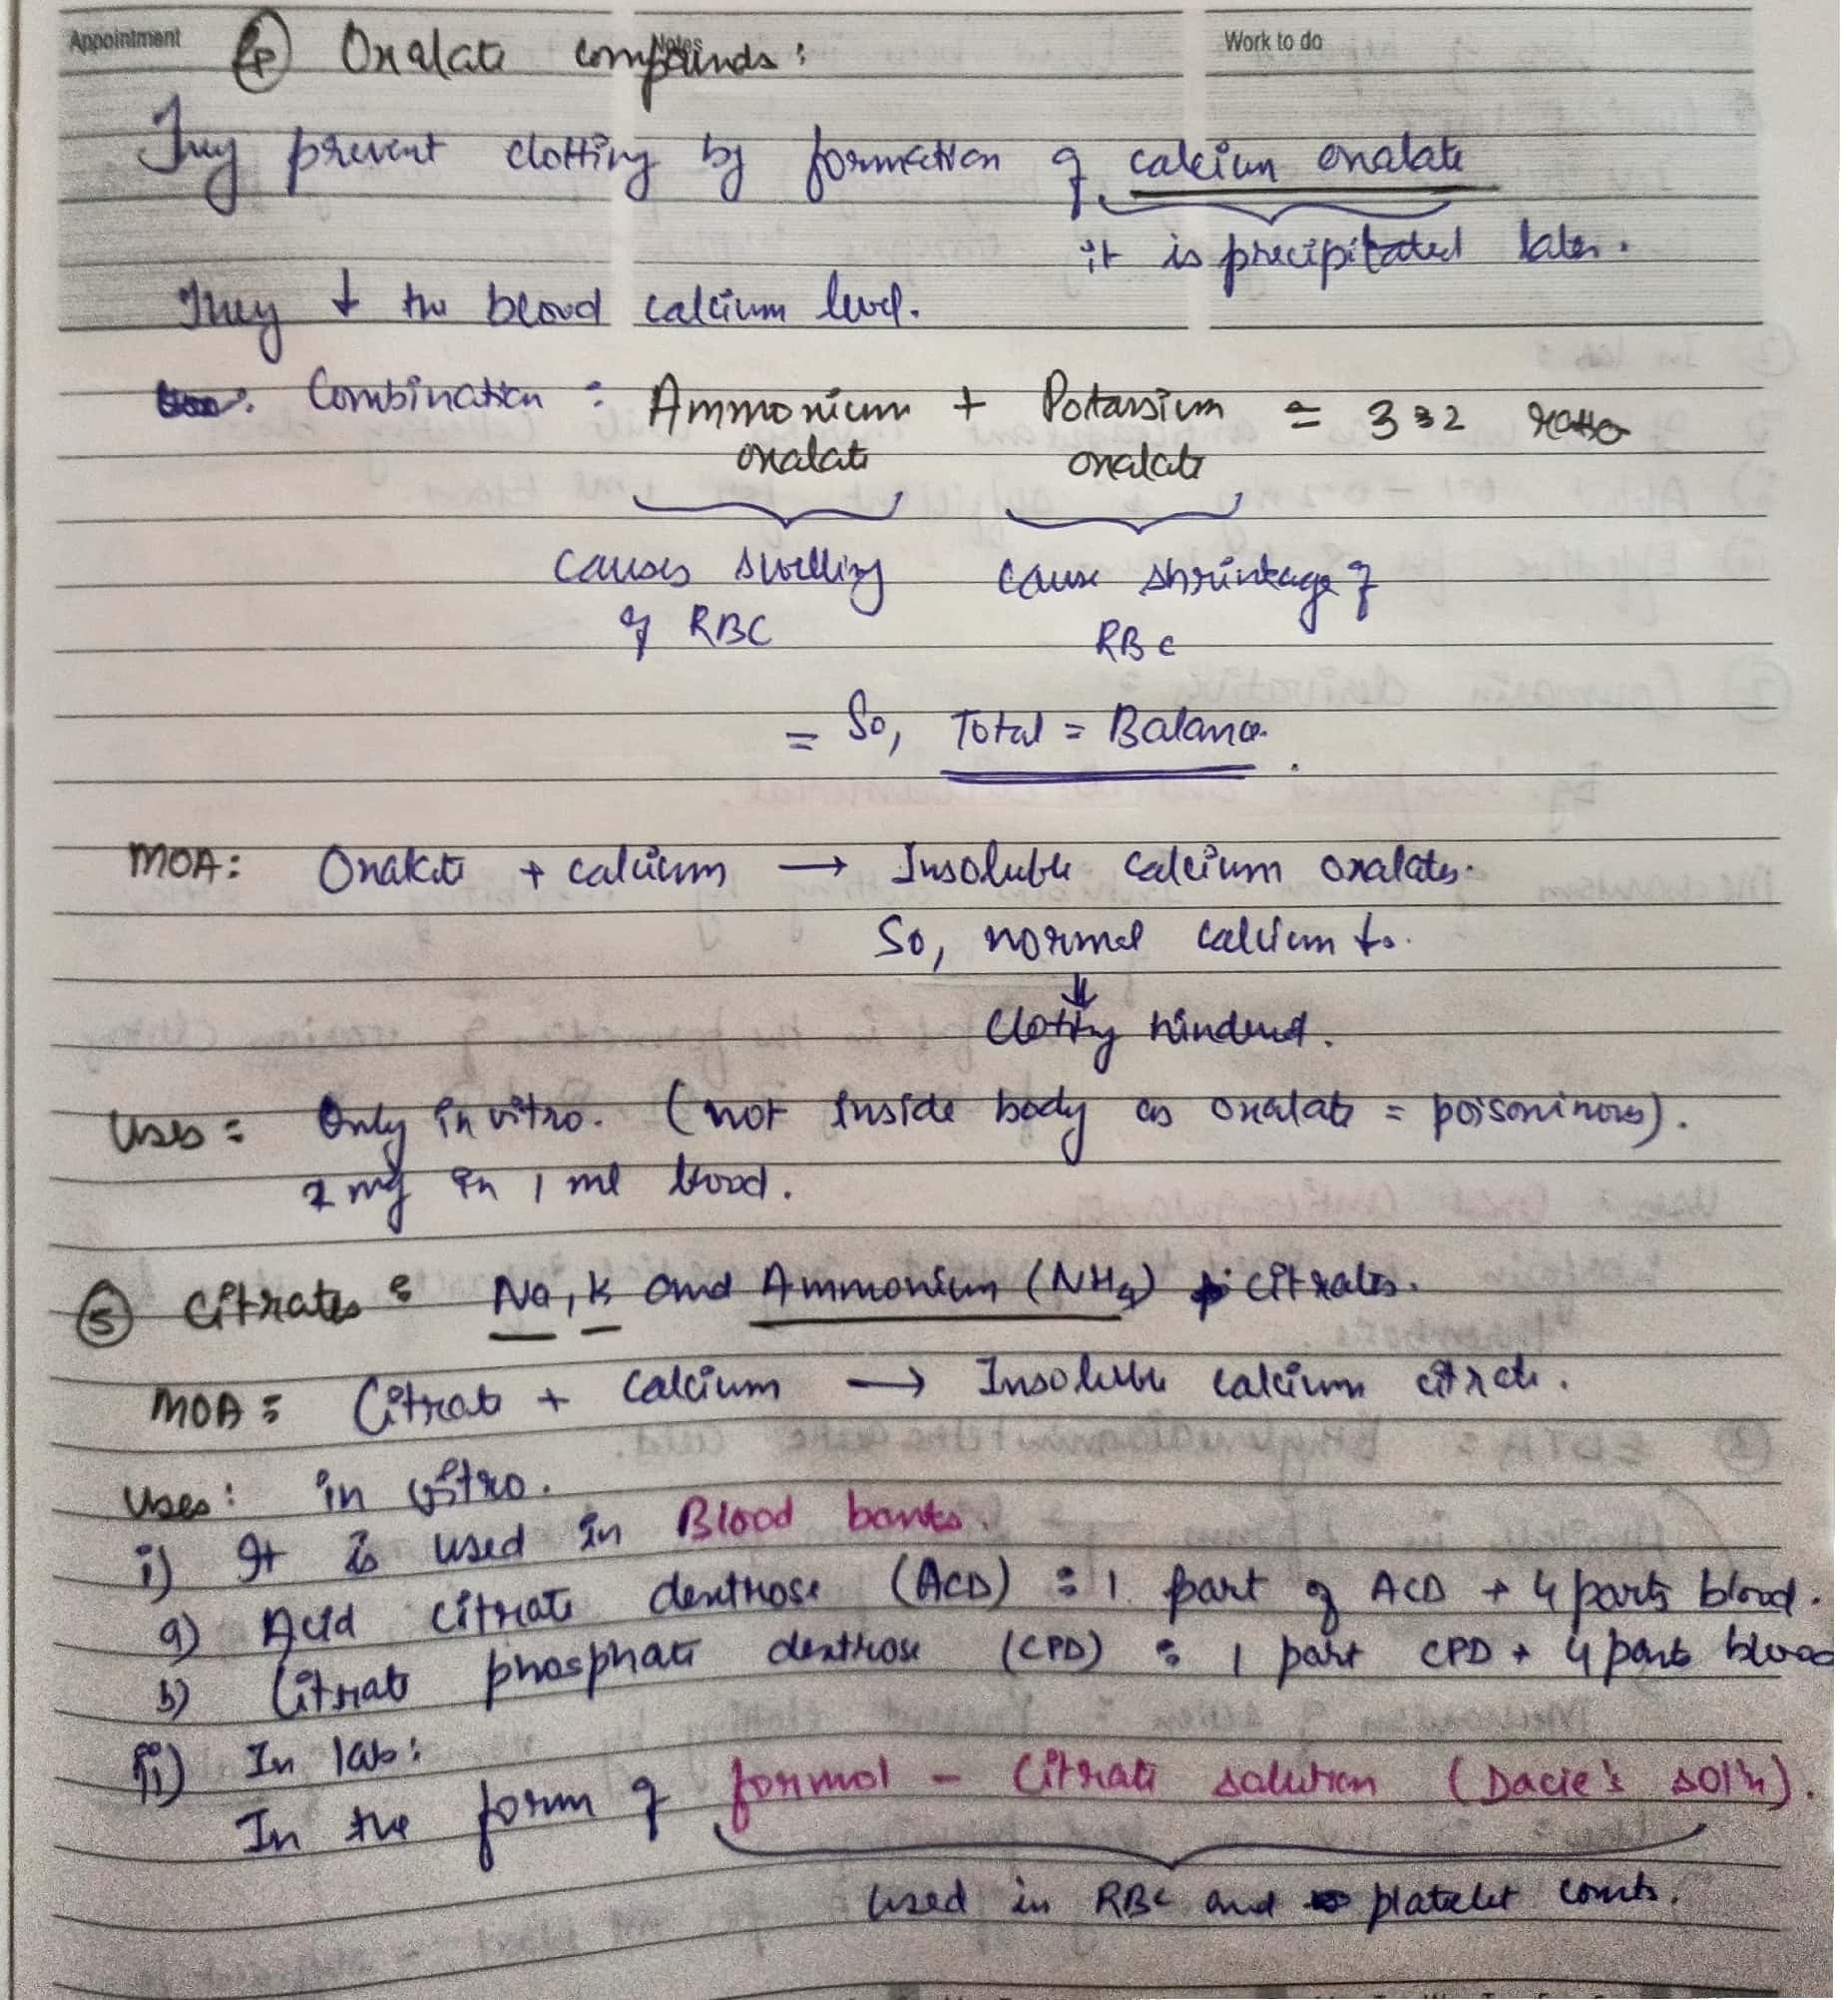 Appointment Notes Work to do
④ Oxalate compounds :
They prevent clotting by formation of calcium oxalate
it is precipitated later.
They ↓ the blood calcium level.
Combination : Ammonium oxalate + Potassium oxalate = 3:2 ratio
causes swelling of RBC cause shrinkage of RBC
= So, Total = Balance.
MOA: Oxalate + calcium → Insoluble calcium oxalates.
So, normal calcium ↓s.
⇓
Clotting hindered.
Uses = Only in vitro. (not inside body as oxalate = poisoninous).
2 mg in 1 ml blood.
⑤ Citrates : Na, K and Ammonium (NH4) citrates.
MOA : Citrate + Calcium → Insoluble calcium citrate.
Uses: in vitro.
i) It is used in Blood banks.
a) Acid citrate dextrose (ACD) : 1 part of ACD + 4 parts blood.
b) Citrate phosphate dextrose (CPD) : 1 part CPD + 4 parts blood
ii) In lab:
In the form of formol - Citrate solution (Dacie's sol'n).
used in RBC and platelet counts.